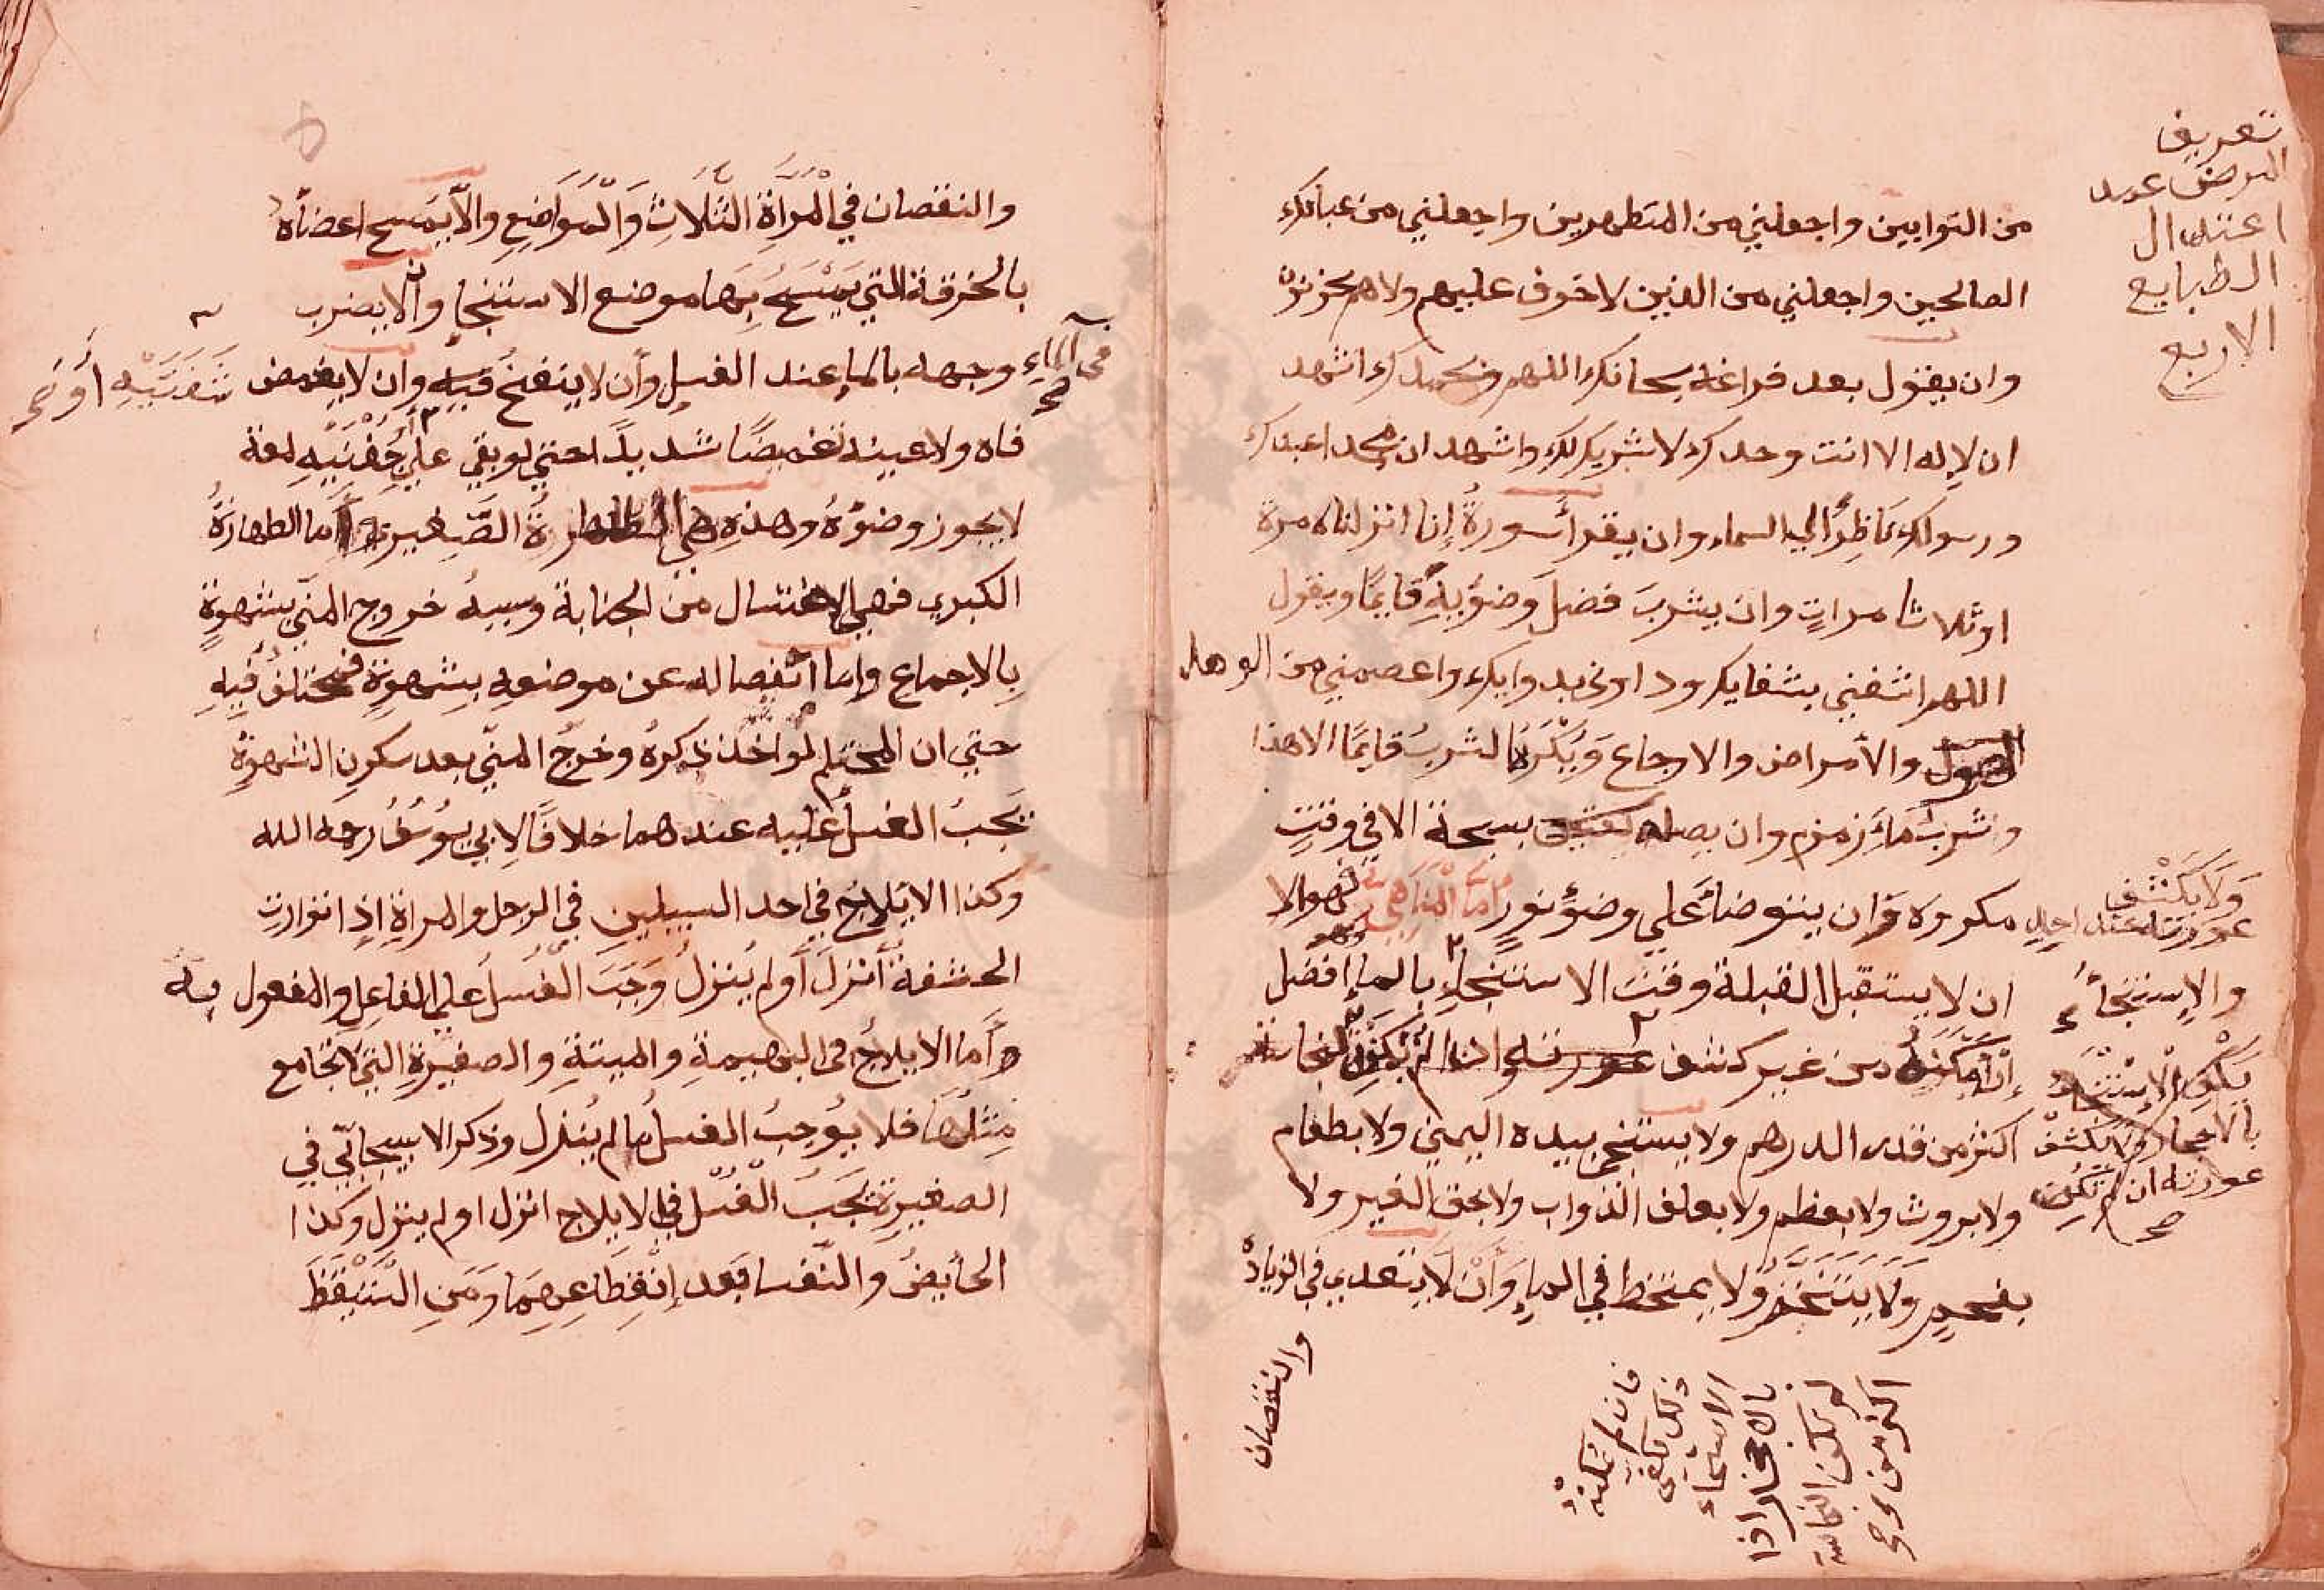 من التوابين واجعلني من المتطهرين واجعلني من عبادك
الصالحين واجعلني من الذين لا خوف عليهم ولا هم يحزنون
وان يقول بعد فراغه سبحانك اللهم وبحمدك اشهد
ان لا اله الا انت وحدك لا شريك لك واشهد ان محمدا عبدك
ورسولك ناظِرًا الي السماء وان يقرأ سورةُ إنا انزلناه مرة
او ثلاثا مراتٍ وان يشربَ فضل وضوئِهِ قايمًا ويقول
اللهم اشفني بشفايك وداوني بدوايك واعصمني من الوهل
والأمراض والاوجاع وَيُكْرَهُ الشربُ قايمًا الا هذا
وشربُ ماءِ زمزم وان يصلي بسبحة الا في وقتٍ
مكروه وان يتوضأ علي وضوءٍ نورٍ أما المَنَاهِي فهو الا
ان لا يستقبل القبلة وقت الاستنجاءِ بالماءِ افضل
إن أمكنهُ من غير كشف عورته
اكثر من قدر الدرهم ولا يستنجي بيده اليمني ولا بطعام
ولا بروث ولا بعظم ولا بعلف الدواب ولا بحق الغير ولا
بفحمٍ وَلَا يَتَنَخَّمَ وَلا يمتخط في الماءِ وَأَنْ لَا يتعدي في الزيادة
والنقصان
تعريف
المرض عند
اعتدال
الطبايع
الاربع
وَلَا يَكْشف
عورته عند احد
والإستنجاءُ
بالاحجار ولا يكشف
عورته ان لم تكن
صح
فان لم يمكنهْ
ذلك يكفي
الاستنجاء
بالاحجار اذا
لم تكن النجاسة
اكثر من درهم
والنقصان في المرأة الثَّلَاثِ وَالْمَوَاضِعِ والّا يَمْسح اعضاءهُ
بالخرقة التي يَمْسَحُ بِهَا موضع الاستنجاء وان لا يضرب
وجهه بالماءِ عند الغسل وأن لا ينفخُ فيهِ وان لا يغمض
فاه ولا عينيه تغميضًا شديدًا حتي لو بقي علي جَفْنَيْهِ لمعة
لا يجوز وضوءُهُ وهذهِ هي الطهارةُ الصَّغيري وأما الطهارةُ
الكبري فهي الاغتسال من الجنابة وسببهُ خروج المني بشهوةٍ
بِالاجماع وإما انفصاله عن موضعهِ بِشهوةٍ فمختلفُ فيهِ
حتي ان المحتلم لَو اخذ ذكرهُ وخرجُ المنيّ بعد سكونِ الشهوةِ
تَجبُ الغسلُ عليه عندهما خلافًا لابي يوسُفُ رحمه الله
وكذا الايلاج في احد السبيلين في الرجل والمرأةِ اذا توارت
الحشفة أَنْزلَ أو لم يُنزلُ وَجَبَ الغُسلُ علي الفاعل والمفعول به
وأما الايلاجُ في البهيمةِ والميتةِ والصغيرةِ التي لا تجامع
مِثلُهَا فلا يُوجبُ الغسلُ ما لم يُنزل وذكر الاسبيجابيّ في
الصغيرة يَجَبُ الغُسْل في الايلاج انزل او لم ينزل وكذا
الحايضُ والنّفسا بَعد إنْقِطَاعِهِمَا وَمَنِ اسْتَيْقَظَ
في الماءِ
صح
شَفَتَيْهِ أَوْ صح